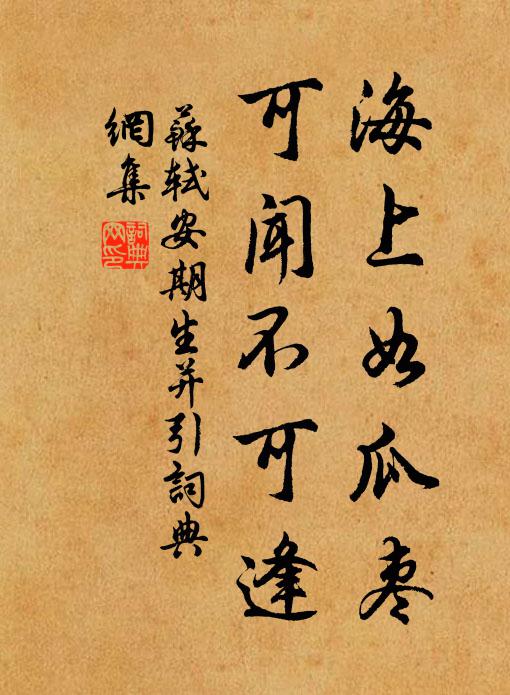 海上如瓜枣
可闻不可逢
蘇軾安期生并引詞典
網集
詞典
网印